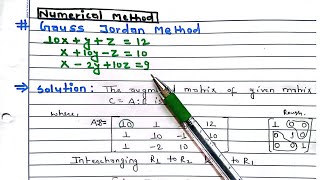 Numerical Method
# Gauss Jordan Method
10x + y + z = 12
x + 10y - z = 10
x - 2y + 10z = 9
⇒ Solution: The augmented matrix of given matrix
C = A:B is
where,
Rough
AB = 10 1 12
1 10 -1 10
1 -2 10
1 0 0
0 1 0
0 0 1
Interchanging R₁ to R₂ to